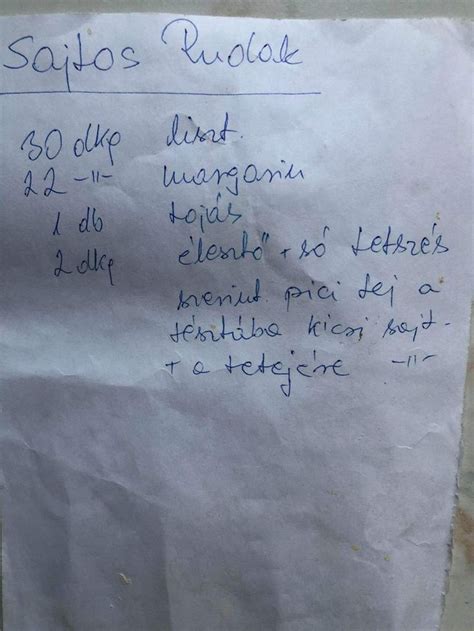 Sajtos Rudak
30 dkg liszt.
22 -11- margarin
1 db tojás
2 dkg élesztő + só tetszés
szerint pici tej a
tésztába kicsi sajt.
+ a tetejére -11-